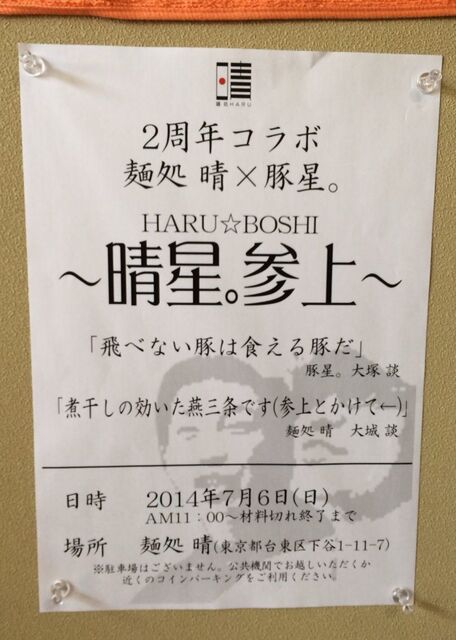 晴
麺処HARU
2周年コラボ
麺処 晴×豚星。
HARU☆BOSHI
～晴星。参上～
「飛べない豚は食える豚だ」
豚星。大塚 談
「煮干しの効いた燕三条です(参上とかけて←)」
麺処 晴 大城 談
日時 2014年7月6日(日)
AM11：00～材料切れ終了まで
場所 麺処 晴(東京都台東区下谷1-11-7)
※駐車場はございません。公共機関でお越しいただくか
近くのコインパーキングをご利用ください。